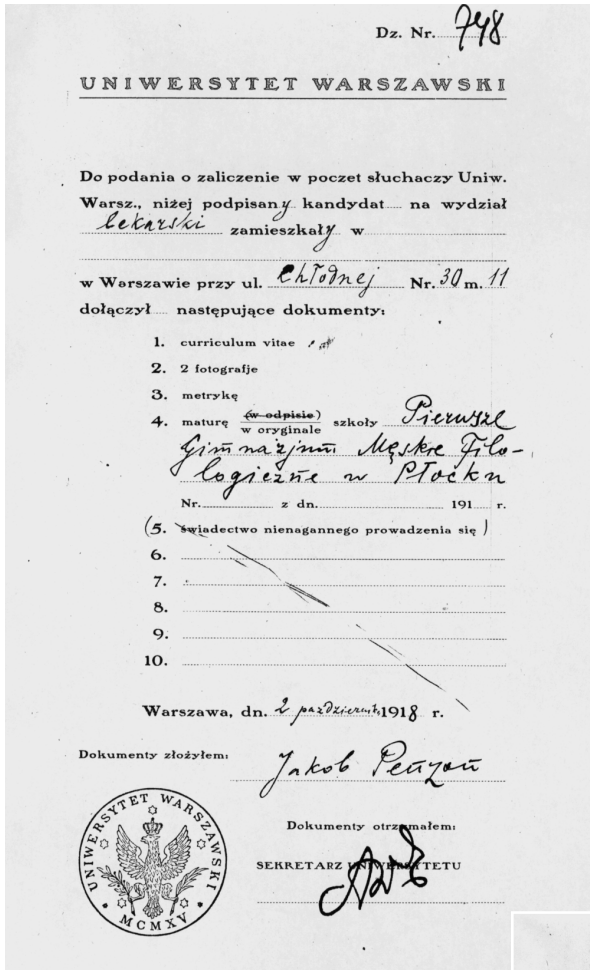 Dz. Nr. 748
UNIWERSYTET WARSZAWSKI
Do podania o zaliczenie w poczet słuchaczy Uniw.
Warsz., niżej podpisany kandydat na wydział
lekarski zamieszkały w
w Warszawie przy ul. Chłodnej Nr. 30 m. 11
dołączył następujące dokumenty:
1. curriculum vitae
2. 2 fotografje
3. metrykę
4. maturę (w odpisie) w oryginale szkoły Pierwsze
Gimnazjum Męskie Filo-
logiczne w Płocku
Nr. z dn. 191 r.
(5. świadectwo nienagannego prowadzenia się)
6.
7.
8.
9.
10.
Warszawa, dn. 2 październik 1918 r.
Dokumenty złożyłem:
Jakob Penzon
Dokumenty otrzymałem:
SEKRETARZ UNIWERSYTETU
UNIWERSYTET WARSZAWSKI
MCMXV